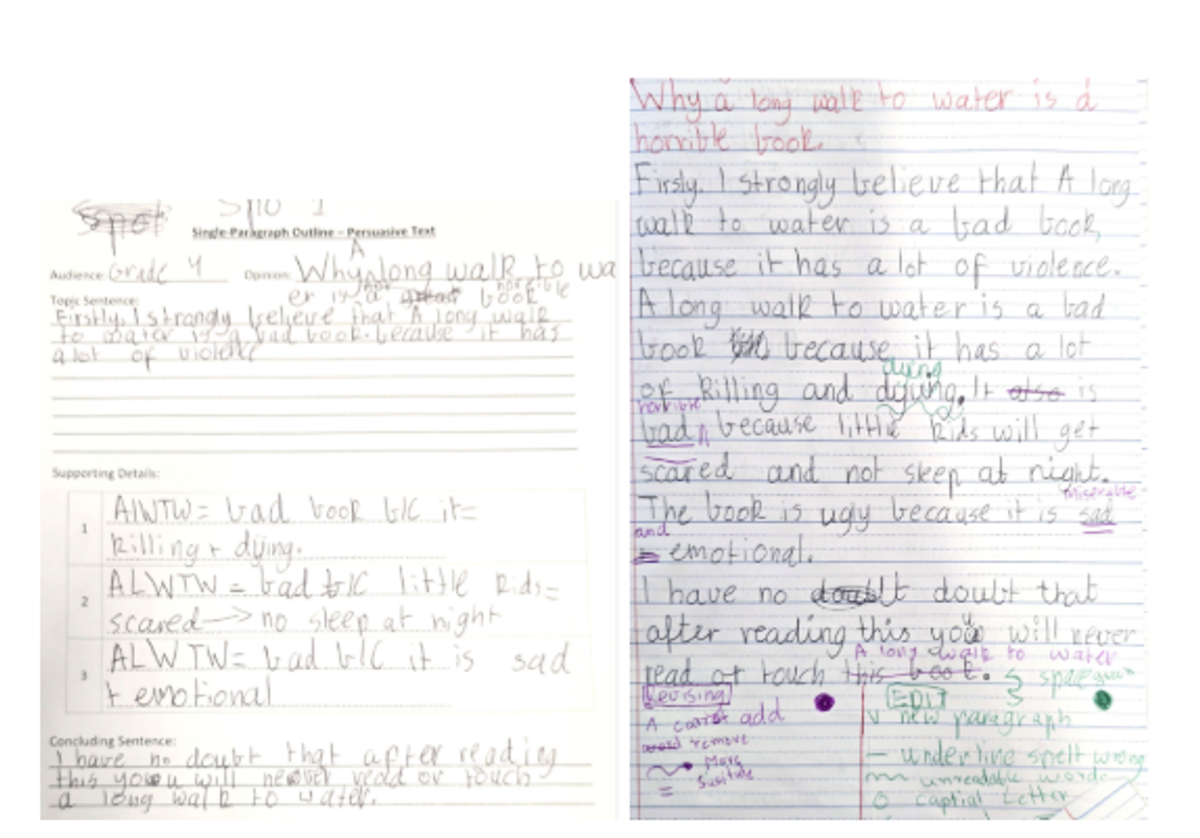 Spo 1
Single-Paragraph Outline – Persuasive Text
A
Audience: Grade 4 Opinion: Why long walk to wa
er is a horrible book
Topic Sentence:
Firstly, I strongly believe that A long walk
to water is a bad book. because it has
a lot of violence
Supporting Details:
1
ALWTW = bad book b/c it=
killing + dying.
2
ALWTW = bad b/c little kids=
scared → no sleep at night
3
ALWTW = bad b/c it is sad
+ emotional
Concluding Sentence:
I have no doubt that after reading
this you will never read or touch
a long walk to water.
Why a long walk to water is a
horrible book.
Firsly, I strongly believe that A long
walk to water is a bad book,
because it has a lot of violence.
A long walk to water is a bad
book because it has a lot
dying
of killing and dguing. It also is
horrible
bad because little kids will get
scared and not sleep at night.
miserable
The book is ugly because it is sad
and
emotional.
I have no doubt that
after reading this you will never
A long walk to water
read or touch this book.
Revising
A carret add
remove
Move
=
EDIT
new paragraph
underline spelt wrong
unreadable words
captial letter